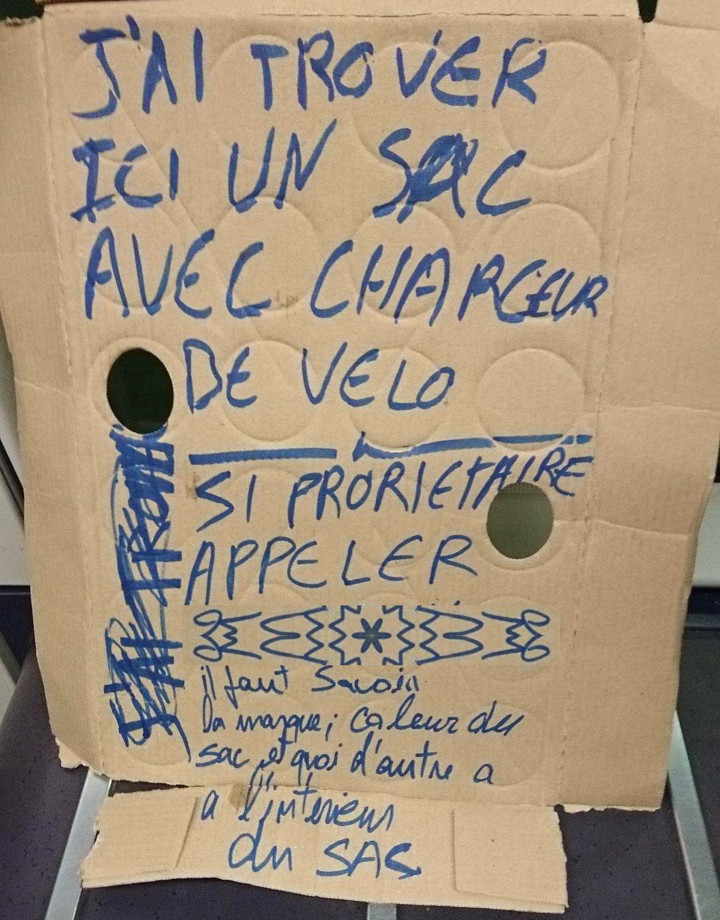 J'AI TROVER
ICI UN SAC
AVEC CHARGEUR
DE VELO
SI PRORIETAIRE
APPELER
il faut savoir
la marque, coleur du
sac et quoi d'autre a
a l'intérieur
du SAC
J'AI TROVER